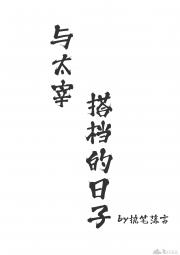 与太宰
搭档的日子
by梳笔落言